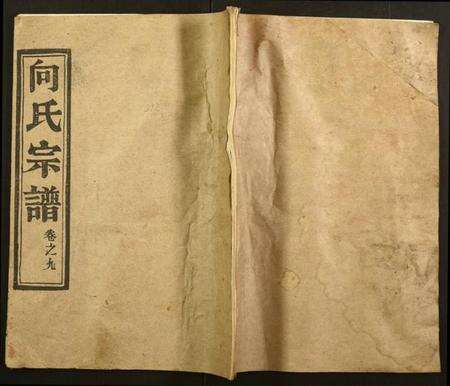 向氏宗譜
卷之九